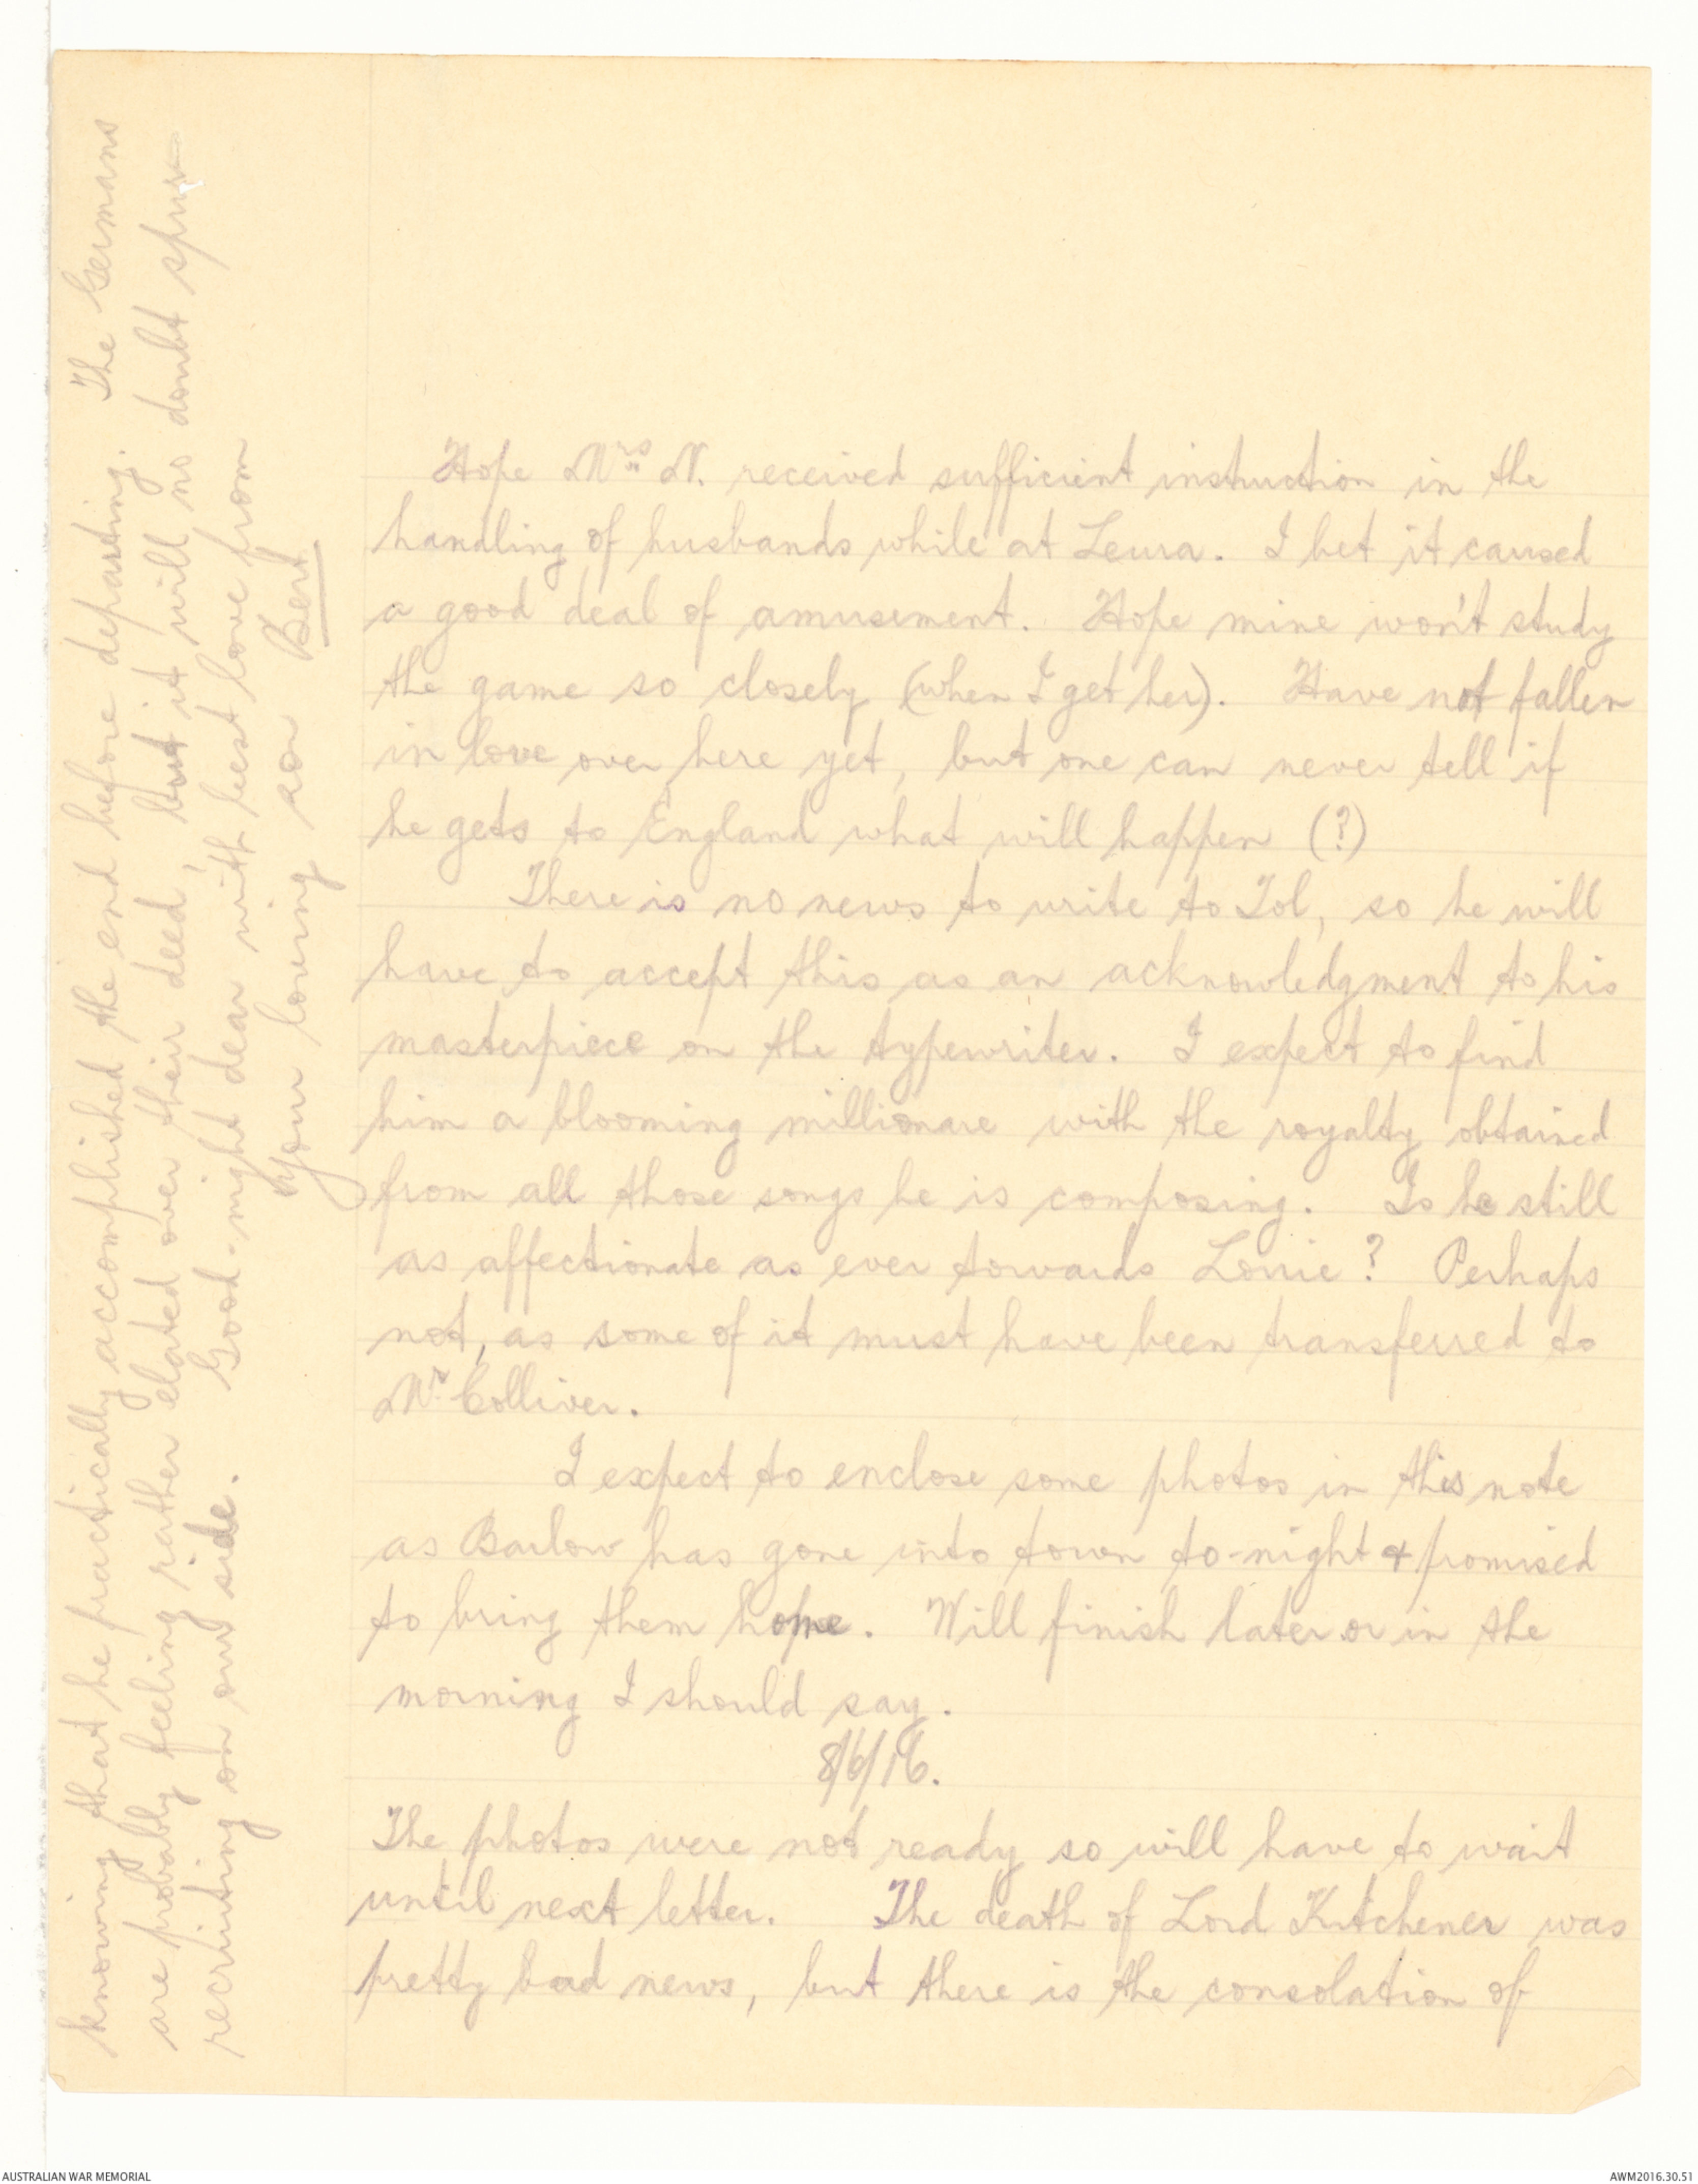 Hope Mrs N. received sufficient instruction in the
handling of husbands while at Leura. I bet it caused
a good deal of amusement. Hope mine won't study
the game so closely (when I get her). Have not fallen
in love over here yet, but one can never tell if
he gets to England what will happen (?)
There is no news to write to Tol, so he will
have to accept this as an acknowledgment to his
masterpiece on the typewriter. I expect to find
him a blooming millionare with the royalty obtained
from all those songs he is composing. Is he still
as affectionate as ever towards Lorrie? Perhaps
not, as some of it must have been transferred to
Mr. Colliver.
I expect to enclose some photos in this note
as Barlow has gone into town to-night & promised
to bring them home. Will finish later or in the
morning I should say.
8/6/16.
The photos were not ready so will have to wait
until next letter. The death of Lord Kitchener was
pretty bad news, but there is the consolation of
knowing that he practically accomplished the end before departing. The Germans
are probably feeling rather elated over their deed, but it will no doubt spur
recruiting on our side. Good-night dear with best love from
Your loving son
Bert.
AUSTRALIAN WAR MEMORIAL
AWM2016.30.51